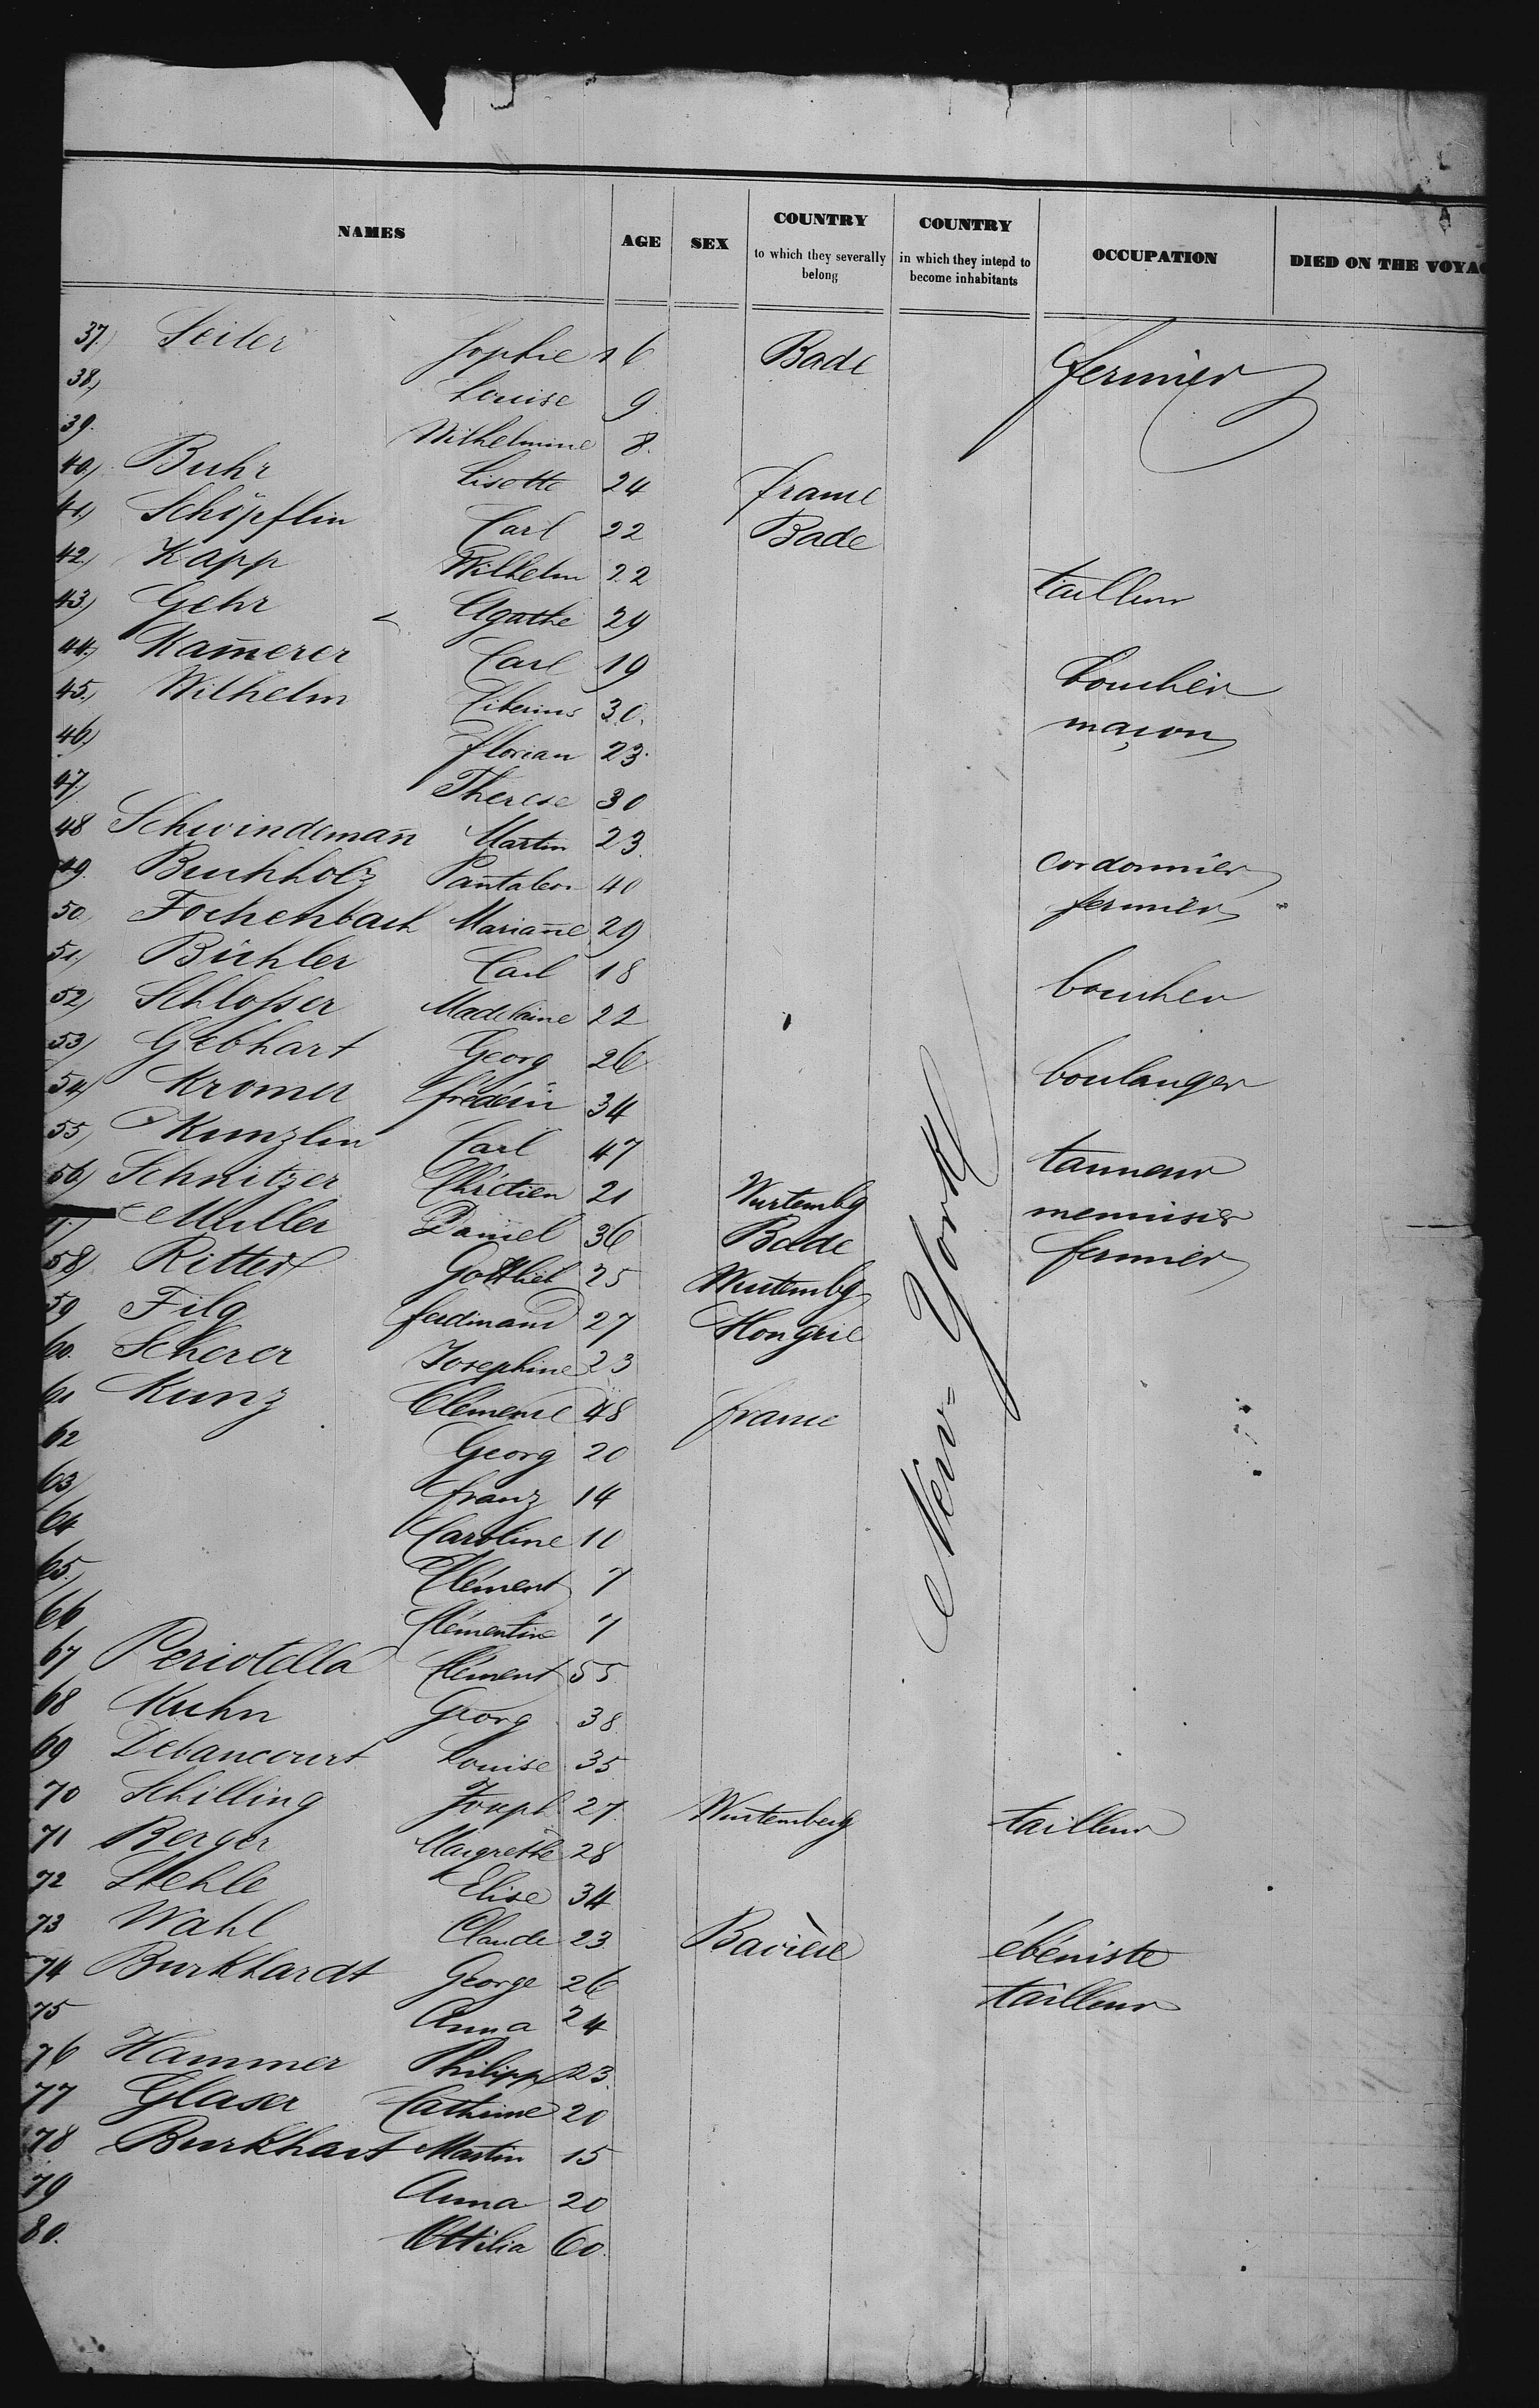 NAMES AGE SEX COUNTRY to which they severally belong COUNTRY in which they intend to become inhabitants OCCUPATION DIED ON THE VOYAG
37.) Seiler Sophie 16 Bade fermier
38.) Louise 9.
39. Wilhelmine 8.
40.) Buhr Lisette 24 france
41.) Schöpflin Carl 22 Bade
42.) Kapp Wilhelm 22 tailleur
43.) Gehr Agathe 29
44.) Kam̄erer Carl 19 boucher
45.) Wilhelm Tiberius 30. maçon
46.) Florian 23.
47.) Therese 30
48 Schwindeman̄ Martin 23. cordonnier
49. Buchholz Pantaleon 40 fermier
50. Fochenbach Marian̄e 29
51.) Bühler Carl 18 boucher
52.) Schlosser Madelaine 22
53) Gebhart Georg 26 boulanger
54) Kromer 34
55) Kunzlin Carl 47 tanneur
56) Schnitzer Chrétien 21 Wurtembg menuisier
7.) Muller Daniel 36 Bade fermier
58) Ritter Gottlieb 25 Wurtembg
59 Filg ferdinand 27 Hongrie
60. Scherer Josephine 23
61 Kunz Clemence 48 france
62 Georg 20
63) franz 14
64 Caroline 10
65.) Clément 7
66 Clémentine 7
67 Periotella Clément 55
68 Kuhn Georg 38
69 Debancourt Louise 35
70 Schilling Joseph 27 Wurtemberg tailleur
71 Berger Margrethe 28
72 Stehle Elise 34
73 Wahl Claude 23 Bavière ébéniste
74 Burkhardt George 26 tailleur
75 Anna 24
76 Hammer Philipp 23.
77 Glaser Catherine 20
78 Burkhart Martin 15
79 Anna 20
80. Ottilia 60.
New-York